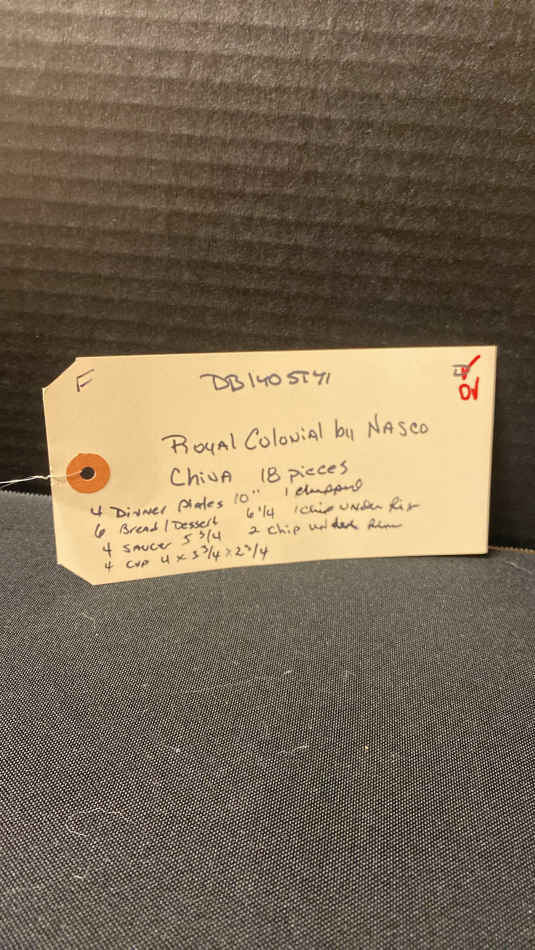 F DB140STYI
DV
Royal Colonial by NASCO
CHINA 18 pieces
4 DINNER plates 10" 1 chipped
6 Bread/Dessert 6 1/4 1 chip UNDER Rim
4 SAUCER 5 3/4 2 chip under Rim
4 CUP 4 x 3 3/4 x 2 3/4